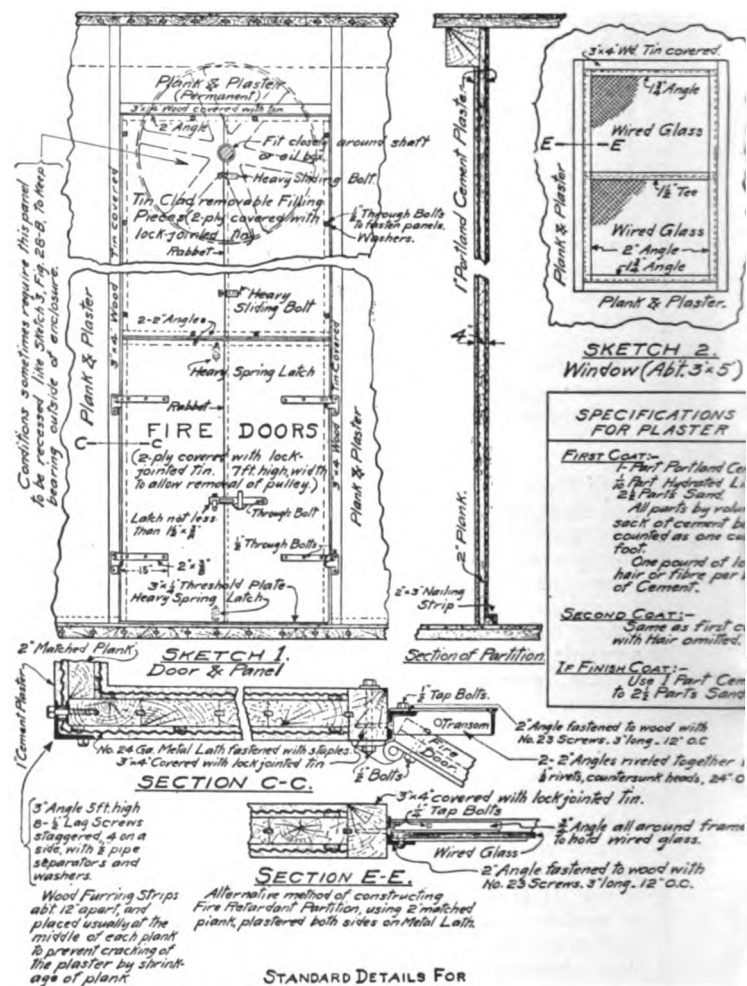 Plank & Plaster
(Permanent)
3"x4" Wood covered with tin
2" Angle
Fit closely around shaft
or oil box
Heavy Sliding Bolt.
Tin Clad removable Filling
Pieces (2-ply covered with
lock-jointed tin)
Rabbet
½" Through Bolts
to fasten panels.
Washers.
Conditions sometimes require this panel
to be recessed like Sketch 3, Fig. 28-B, To Keep
bearing outside of enclosure.
Tin Covered
3"x4" Wood
Plank & Plaster
Heavy
Sliding Bolt
2-2" Angles
Heavy Spring Latch
Rabbet
C C
FIRE DOORS
(2-ply covered with lock-
jointed Tin. 7ft. high, width
to allow removal of pulley.)
Latch not less
than
Through Bolt
½" Through Bolts
15"
3"x½" Threshold Plate
Heavy Spring Latch
Tin Covered
3"x4" Wood
Plank & Plaster
SKETCH 1.
Door & Panel
1" Portland Cement Plaster
2" Plank.
2"x3" Nailing
Strip
Section of Partition.
3"x4" Wd. Tin covered.
Angle
Wired Glass
E E
1½" Tee
Wired Glass
2" Angle
Angle
Plank & Plaster
Plank & Plaster.
SKETCH 2.
Window (Abt. 3'x5')
SPECIFICATIONS
FOR PLASTER
FIRST COAT:-
1-Part Portland Ce
Part Hydrated Li
2½ Parts Sand.
All parts by volu
sack of cement b
counted as one cu
foot.
One pound of lo
hair or fibre per
of Cement.
SECOND COAT:-
Same as first c
with Hair omitted.
IF FINISH COAT:-
Use 1 Part Cem
to 2½ Parts Sand
2" Matched Plank
1" Cement Plaster
No. 24 Ga. Metal Lath fastened with staples.
3"x4" Covered with lock jointed tin
½" Bolts
Tap Bolts.
Transom
Fire
Door
2" Angle fastened to wood with
No. 23 Screws. 3" long - 12" O.C
2-2" Angles riveted together
rivets, countersunk heads, 24" O
SECTION C-C.
3" Angle 5ft. high
8-½" Lag Screws
staggered, 4 on a
side, with pipe
separators and
washers.
Wood Furring Strips
abt. 12" apart, and
placed usually at the
middle of each plank
to prevent cracking of
the plaster by shrink-
age of plank
3"x4" covered with lock jointed Tin.
Tap Bolts
Angle all around frame
to hold wired glass.
Wired Glass
2" Angle fastened to wood with
No. 23 Screws. 3" long. 12" O.C.
SECTION E-E.
Alternative method of constructing
Fire Retardant Partition, using 2" matched
plank, plastered both sides on Metal Lath.
STANDARD DETAILS FOR